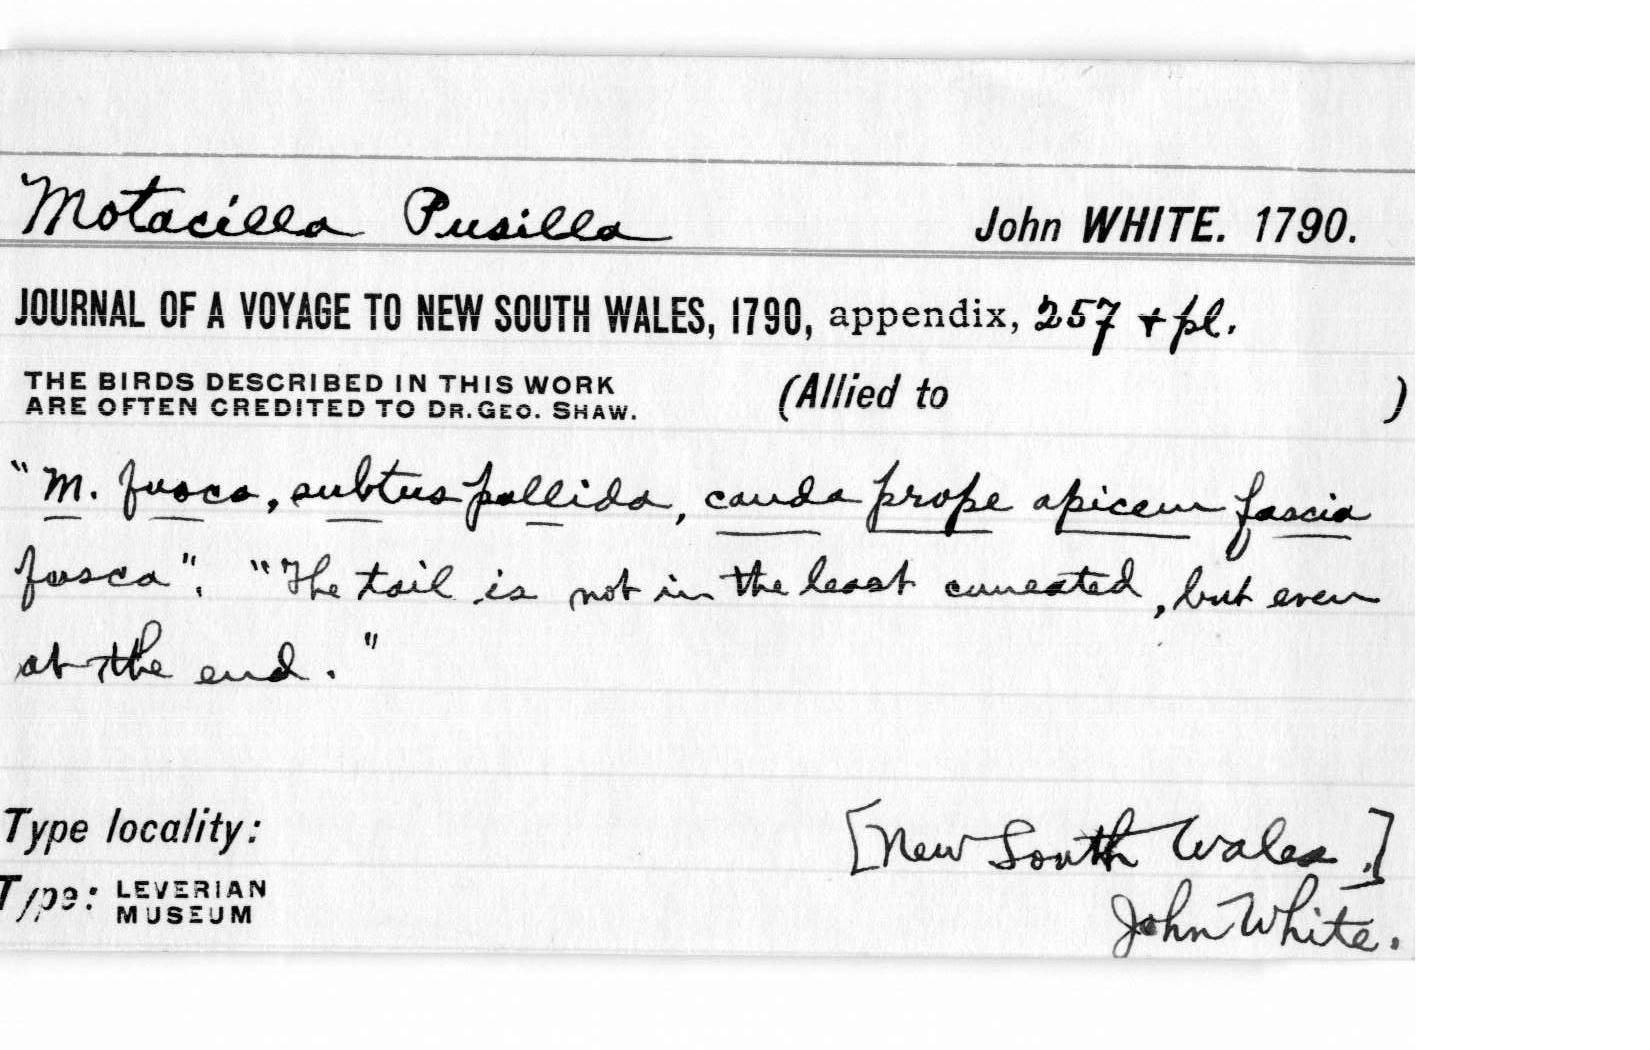 Motacilla Pusilla John WHITE. 1790.
JOURNAL OF A VOYAGE TO NEW SOUTH WALES, 1790, appendix, 257 + pl.
THE BIRDS DESCRIBED IN THIS WORK (Allied to )
ARE OFTEN CREDITED TO DR. GEO. SHAW.
"M. fusca, subtus pallida, cauda prope apicem fascia
fusca". "The tail is not in the least cuneated, but even
at the end."
Type locality: [New South Wales.]
Type: LEVERIAN
MUSEUM John White.